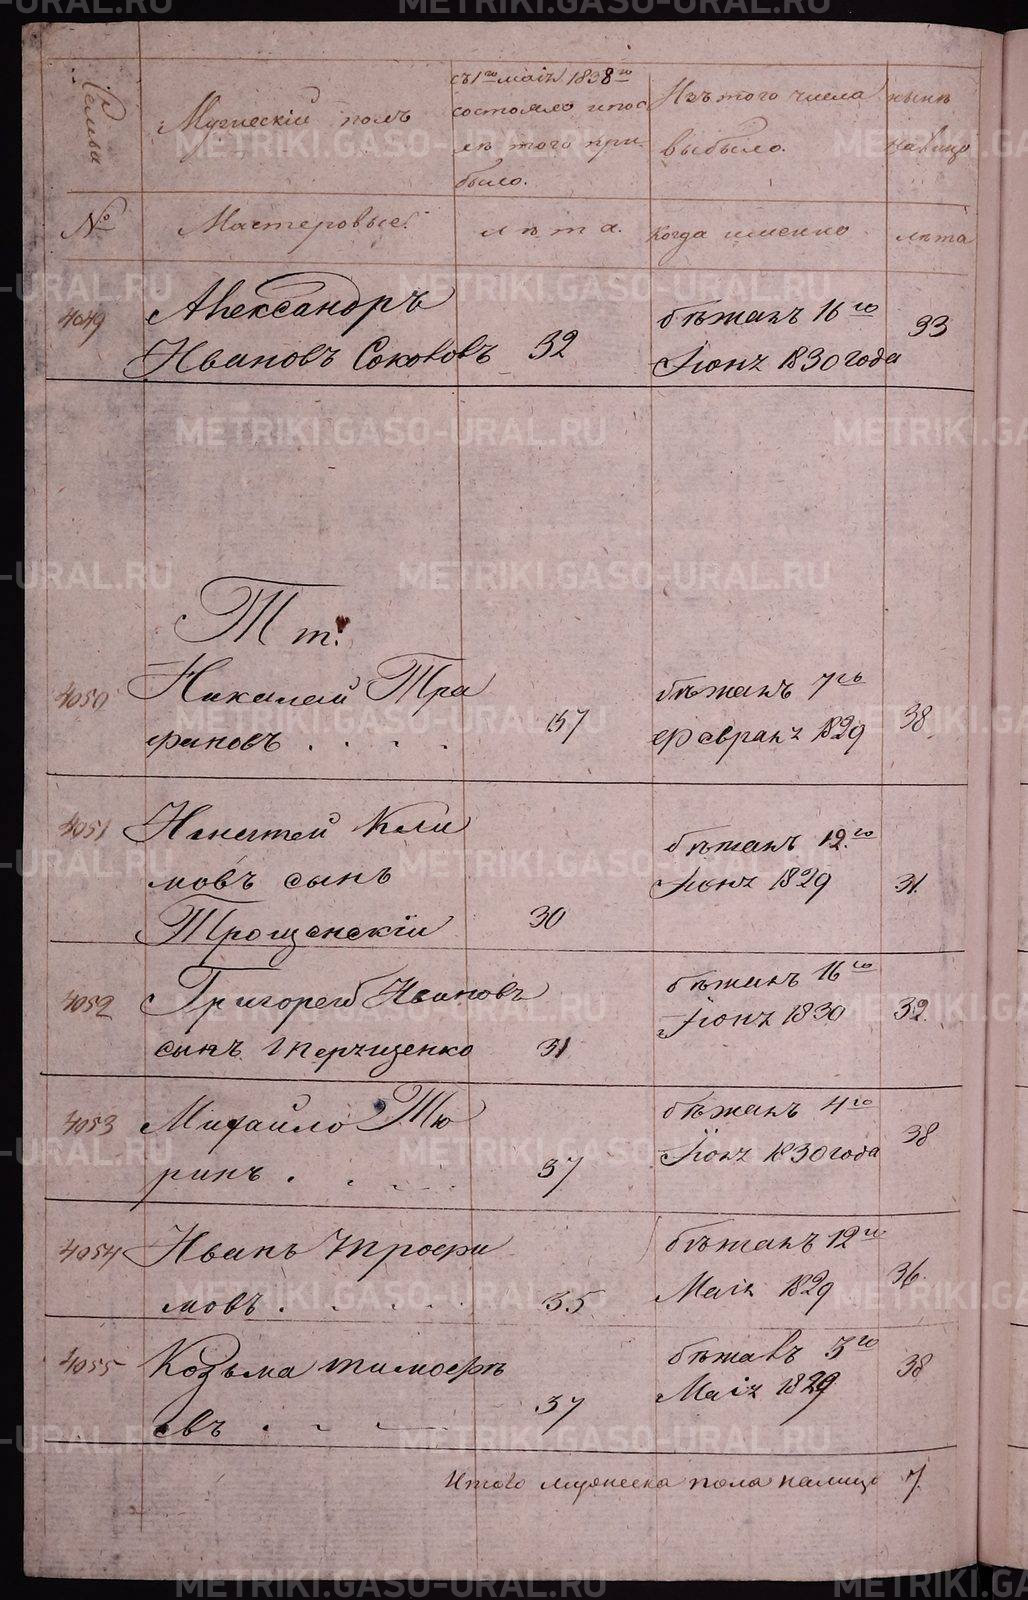 Семья
Мужескiй полъ
съ 1го маiя 1838го
состояло и пос
лѣ того при
было.
Изъ того числа
выбыло.
нынѣ
налицо
№
Мастеровые.
лѣта.
Когда именно
лѣта
4049
Александръ
Ивановъ Соколовъ 32
бѣжалъ 16го
Iюня 1830 года
33
Т т.
4050
Николай Тра
фимовъ . . . . 37
бѣжалъ 7го
Февраля 1829
38.
4051
Игнатей Кли
мовъ сынъ
Трощанскiй 30
бѣжалъ 12.го
Iюня 1829
31.
4052
Григорей Ивановъ
сынъ Терчищенко 31
бѣжалъ 16го
Iюня 1830
32.
4053
Михайло Тю
ринъ . . . . 37
бѣжалъ 4го
Iюня 1830 года
38
4054
Иванъ Трофи
мовъ . . . . 35
бѣжалъ 12го
Маiя 1829
36.
4055
Козьма Тимофѣ
евъ . . . . 37
бѣжалъ 3го
Маiя 1829
38
Итого мужеска пола налицо 7.
METRIKI.GASO-URAL.RU